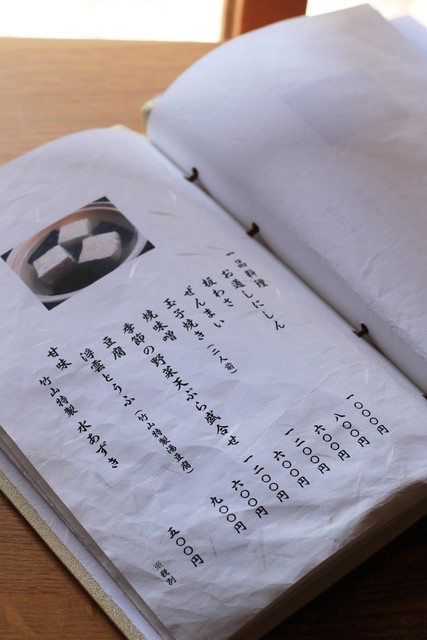 一品料理
お通しにしん 一〇〇〇円
板わさ 八〇〇円
ぜんまい 六〇〇円
玉子焼き(二人前) 一二〇〇円
焼味噌 六〇〇円
季節の野菜天ぷら盛合せ 一二〇〇円
豆腐 六〇〇円
浮雲とうふ(竹山特製湯豆腐) 九〇〇円
甘味 竹山特製 水あずき 五〇〇円
※税別